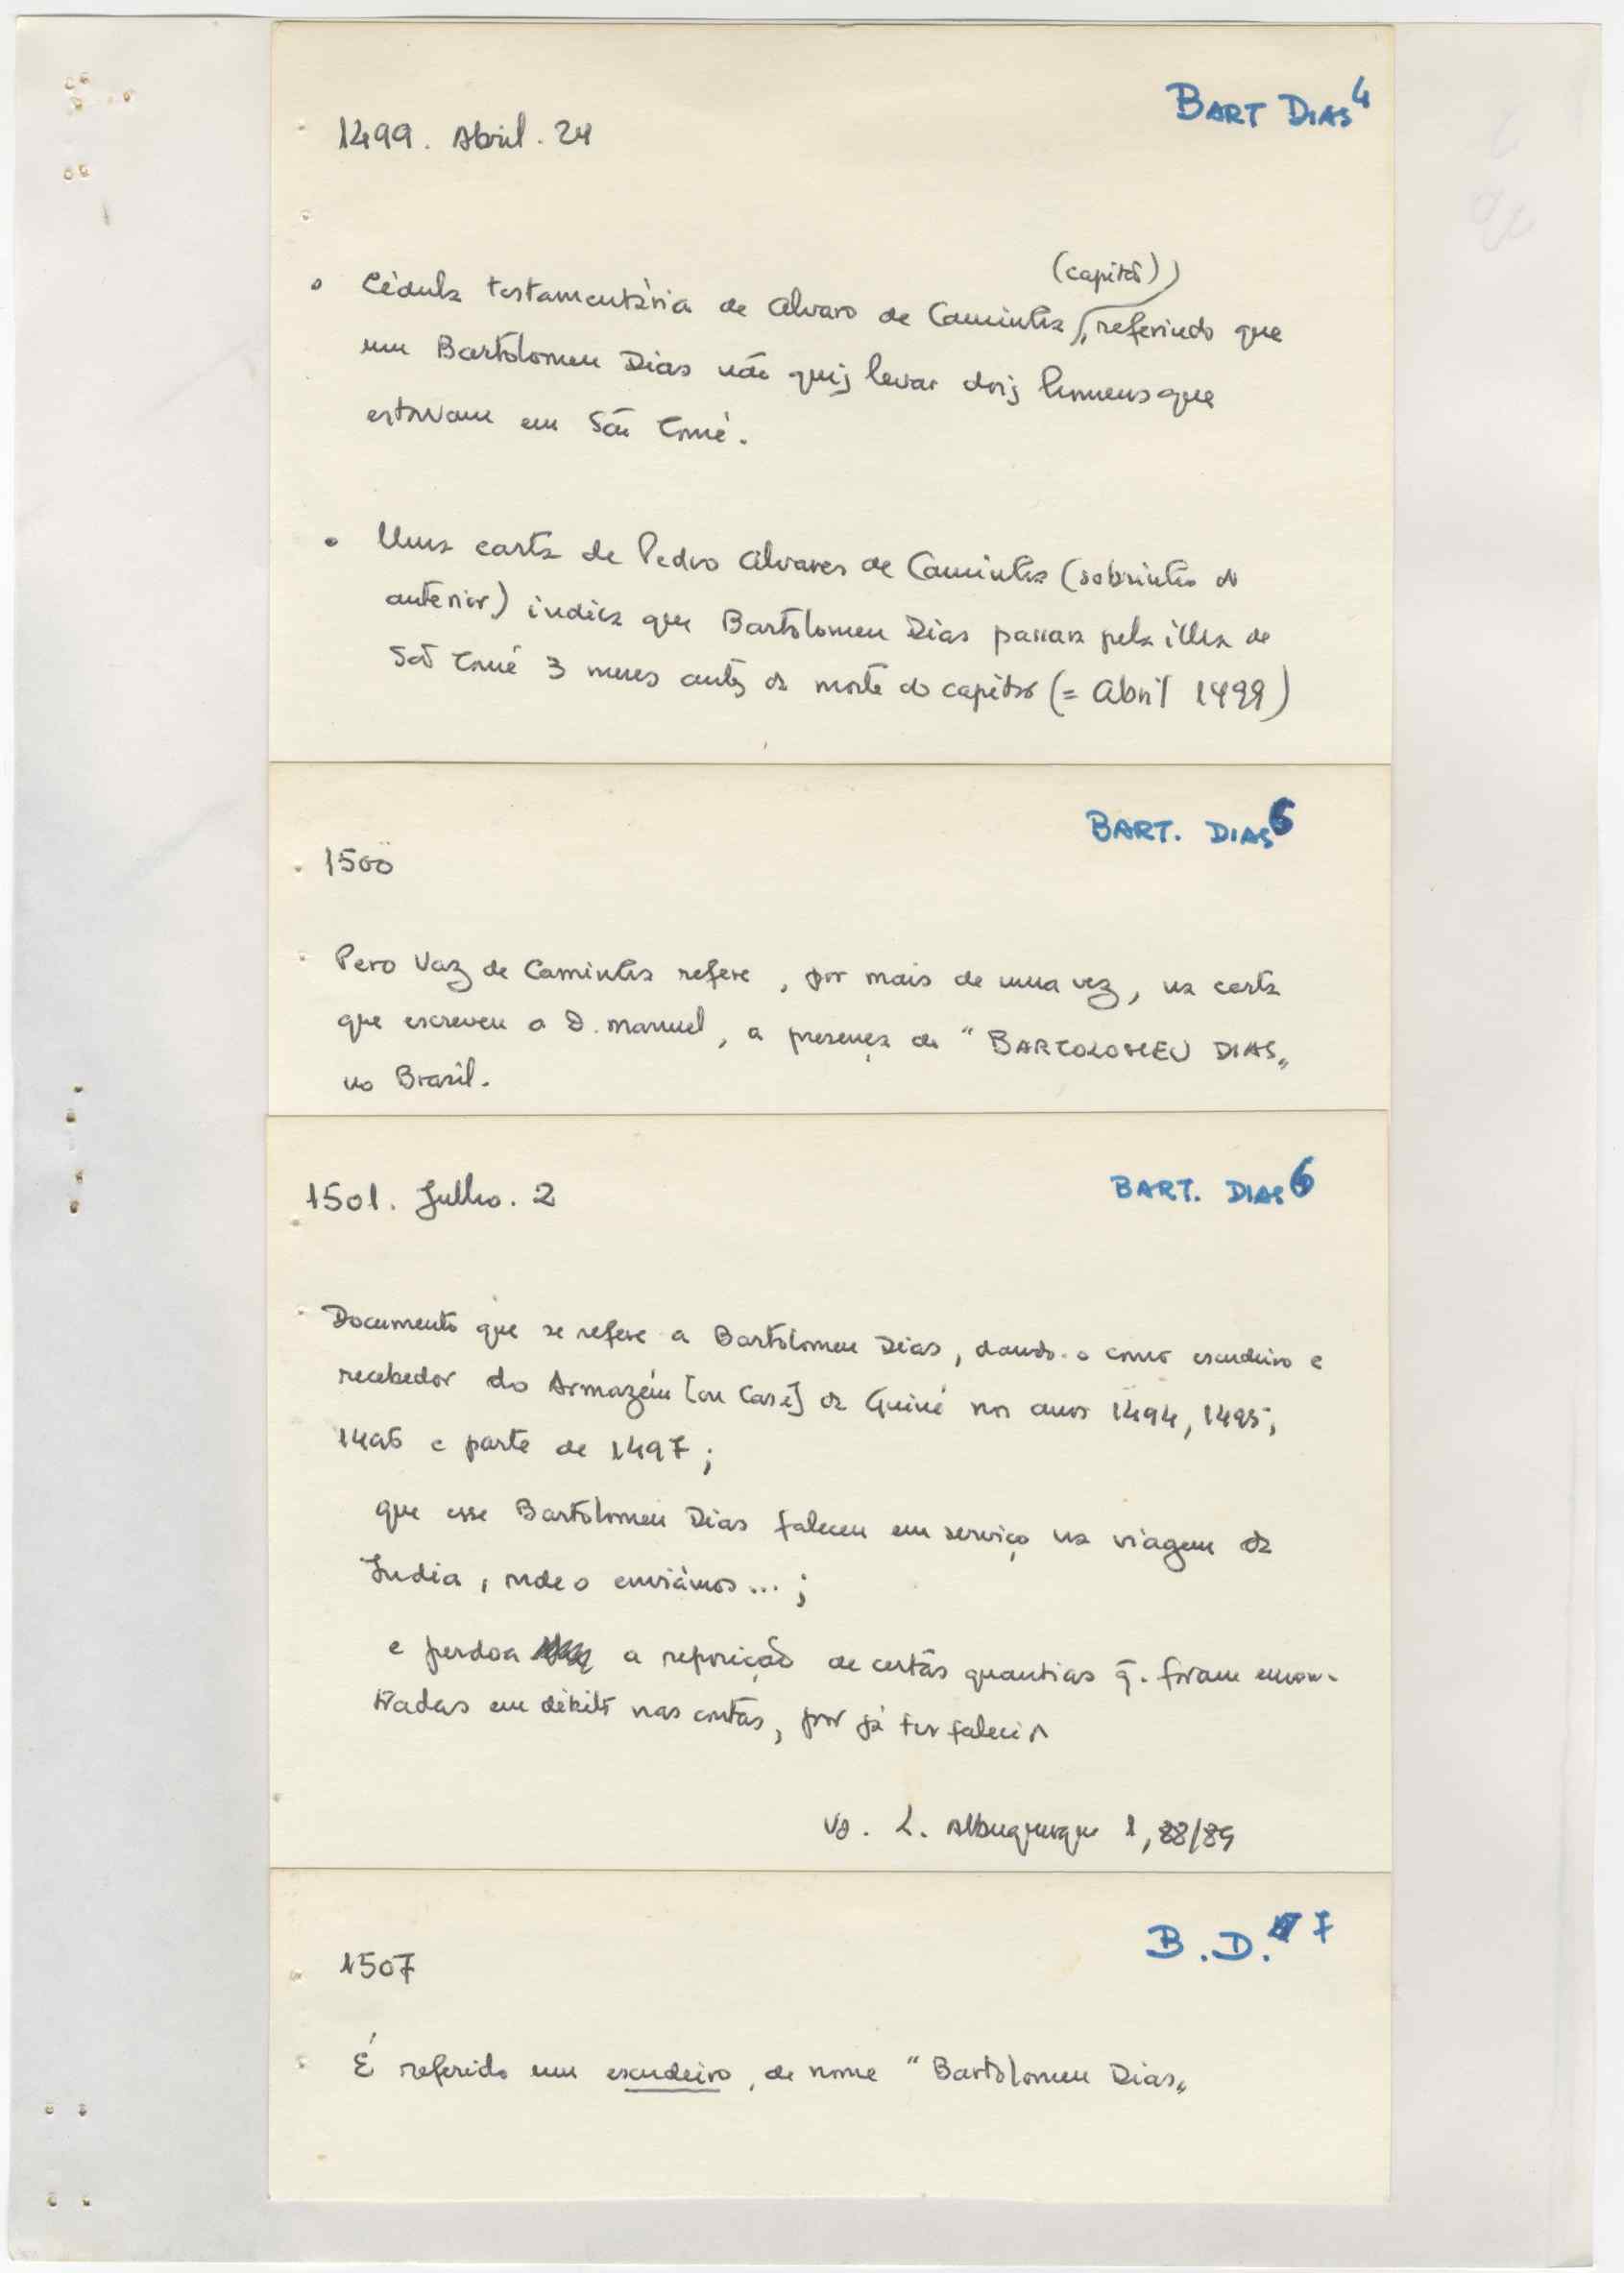 BART DIAS 4
1499. Abril. 24
(capitão)
Cédula testamentária de Alvaro de Caminha, referindo que
um Bartolomeu Dias não quis levar dois homens que
estavam em São Tomé.
Uma carta de Pedro Alvares de Caminha (sobrinho do
anterior) indica que Bartolomeu Dias passara pela ilha de
São Tomé 3 meses antes da morte do capitão (= Abril 1499)
BART. DIAS
1500
Pero Vaz de Caminha refere, por mais de uma vez, na carta
que escreveu a D. Manuel, a presença de "BARTOLOMEU DIAS"
no Brasil.
BART. DIAS 6
1501. Julho. 2
Documento que se refere a Bartolomeu Dias, dando-o como escudeiro e
recebedor do Armazém [ou Casa] da Guiné nos anos 1494, 1495,
1496 e parte de 1497;
que esse Bartolomeu Dias faleceu em serviço na viagem da
India, onde o enviámos...;
e perdoa a reposição de certas quantias q. foram encon-
tradas em débito nas contas, por já ter falecido
L. Albuquerque 1, 88/89
B.D. 7
1507
É referido um escudeiro, de nome "Bartolomeu Dias"